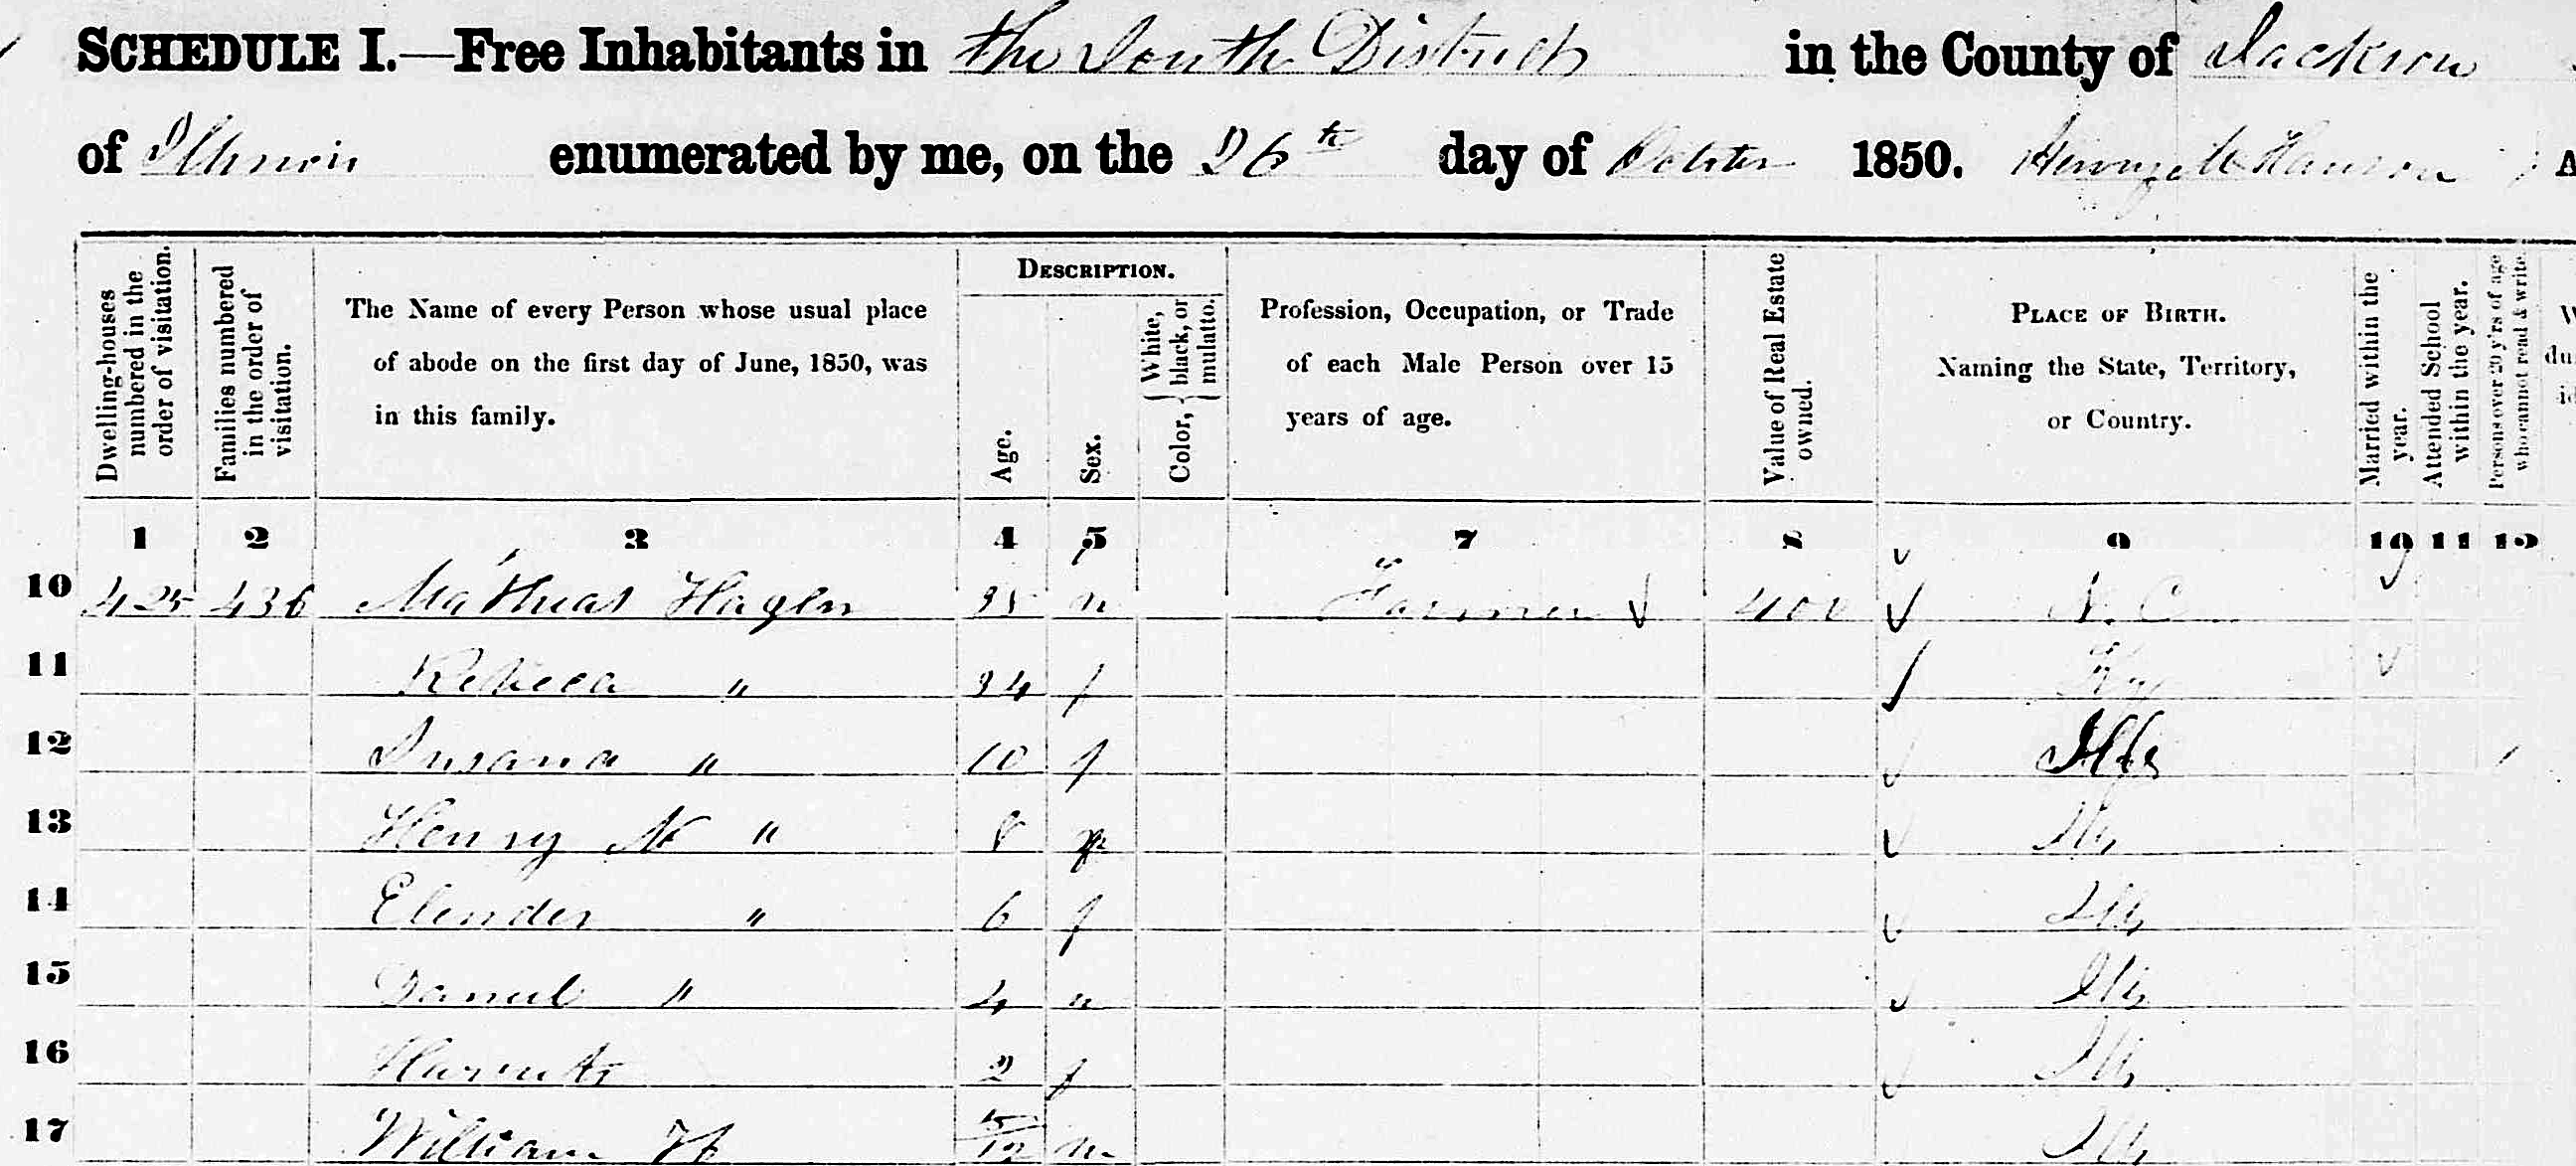 SCHEDULE I.—Free Inhabitants in the South District in the County of Jackson
of Illinois enumerated by me, on the 26th day of October 1850. Henry
Dwelling-houses numbered in the order of visitation.
Families numbered in the order of visitation.
The Name of every Person whose usual place of abode on the first day of June, 1850, was in this family.
DESCRIPTION.
Age.
Sex.
Color, { White, black, or mulatto.
Profession, Occupation, or Trade of each Male Person over 15 years of age.
Value of Real Estate owned.
PLACE OF BIRTH. Naming the State, Territory, or Country.
Married within the year.
Attended School within the year.
Persons over 20 y'rs of age who cannot read & write.
1 2 3 4 5 7 8 9 10 11 12
10 425 436 Mathias Hagler 35 m Farmer 400 N. C
11 Rebecca " 34 f Ky
12 Susana " 10 f Ills
13 Henry " 8 m Ills
14 Elender " 6 f Ills
15 Daniel " 4 m Ills
16 Harriet 2 f Ills
17 William H /12 m Ills